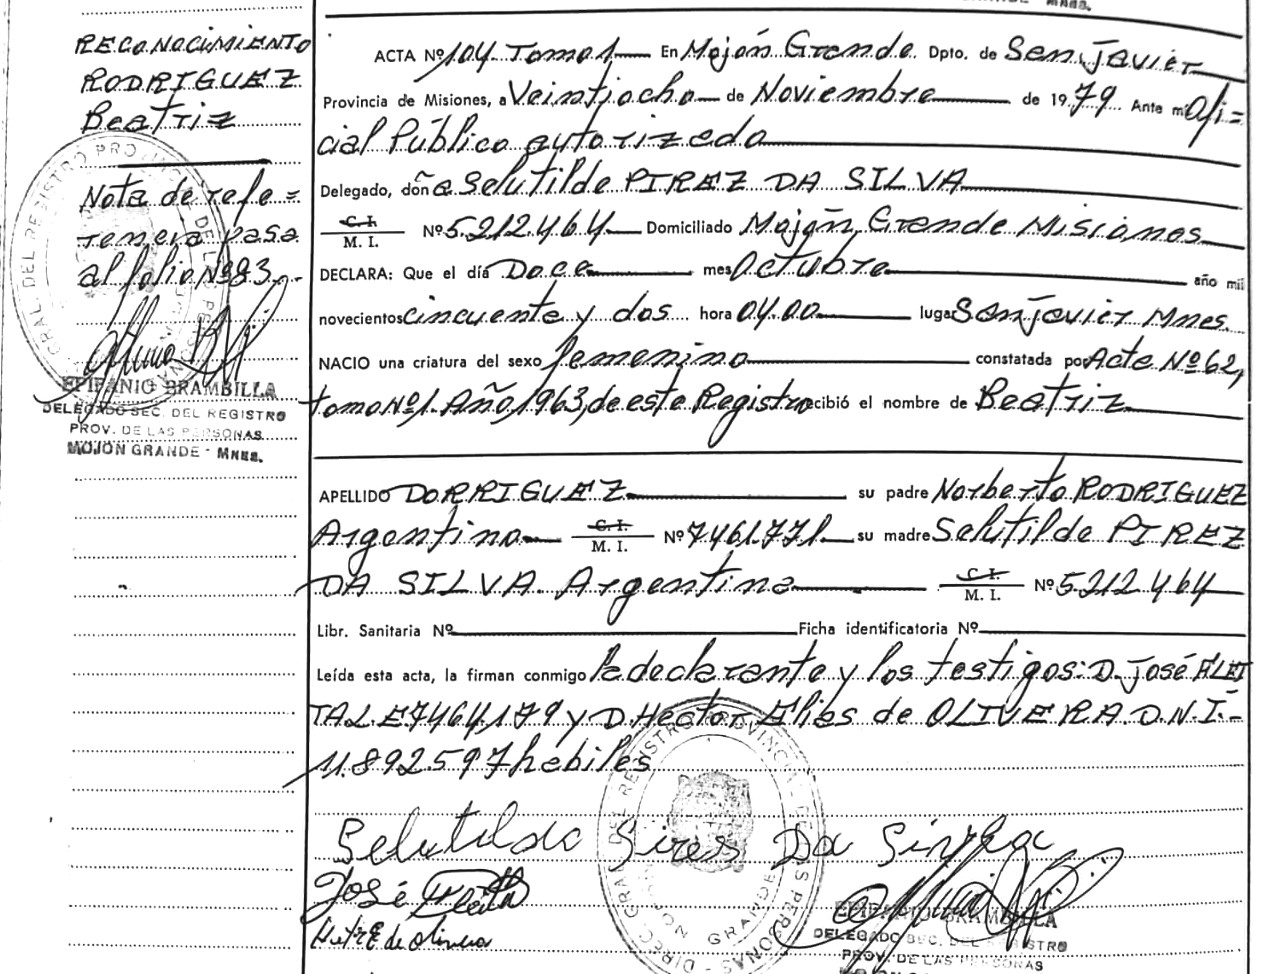 RECONOCIMIENTO
RODRIGUEZ
Beatriz
Nota de refe=
rencia pasa
al folio Nº 83.-
EPIFANIO BRAMBILLA
DELEGADO SEC. DEL REGISTRO
PROV. DE LAS PERSONAS
MOJON GRANDE - MNES.
MNES.
ACTA Nº 104 Tomo 1 En Mojón Grande. Dpto. de San Javier
Provincia de Misiones, a Veintiocho de Noviembre de 1979. Ante mi Ofi=
cial Público autorizado
Delegado, doña Selutilde PIREZ DA SILVA
C. I.
M. I. Nº 5.212.464 Domiciliado Mojón Grande Misiones
DECLARA: Que el día Doce mes Octubre año mil
novecientos cincuenta y dos hora 04.00 lugar San Javier Mnes.
NACIO una criatura del sexo femenino constatada por Acta Nº 62,
tomo Nº 1. Año 1963, de este Registro recibió el nombre de Beatriz
APELLIDO DORRIGUEZ su padre Norberto RODRIGUEZ
Argentino C. I. M. I. Nº 7.461.771 su madre Selutilde PIREZ
DA SILVA. Argentina C. I. M. I. Nº 5.212.464
Libr. Sanitaria Nº Ficha identificatoria Nº
Leída esta acta, la firman conmigo la declarante y los testigos: D. José
y D. Hector Elias de OLIVERA D.N.I.-
11.892.597 habiles
Selutilda Pires Da Silva
José
de Olivera
DIREC. GRAL. DEL REGISTRO PROVINCIAL DE LAS PERSONAS
MOJON GRANDE
EPIFANIO BRAMBILLA
DELEGADO SEC. DEL REGISTRO
PROV. DE LAS PERSONAS